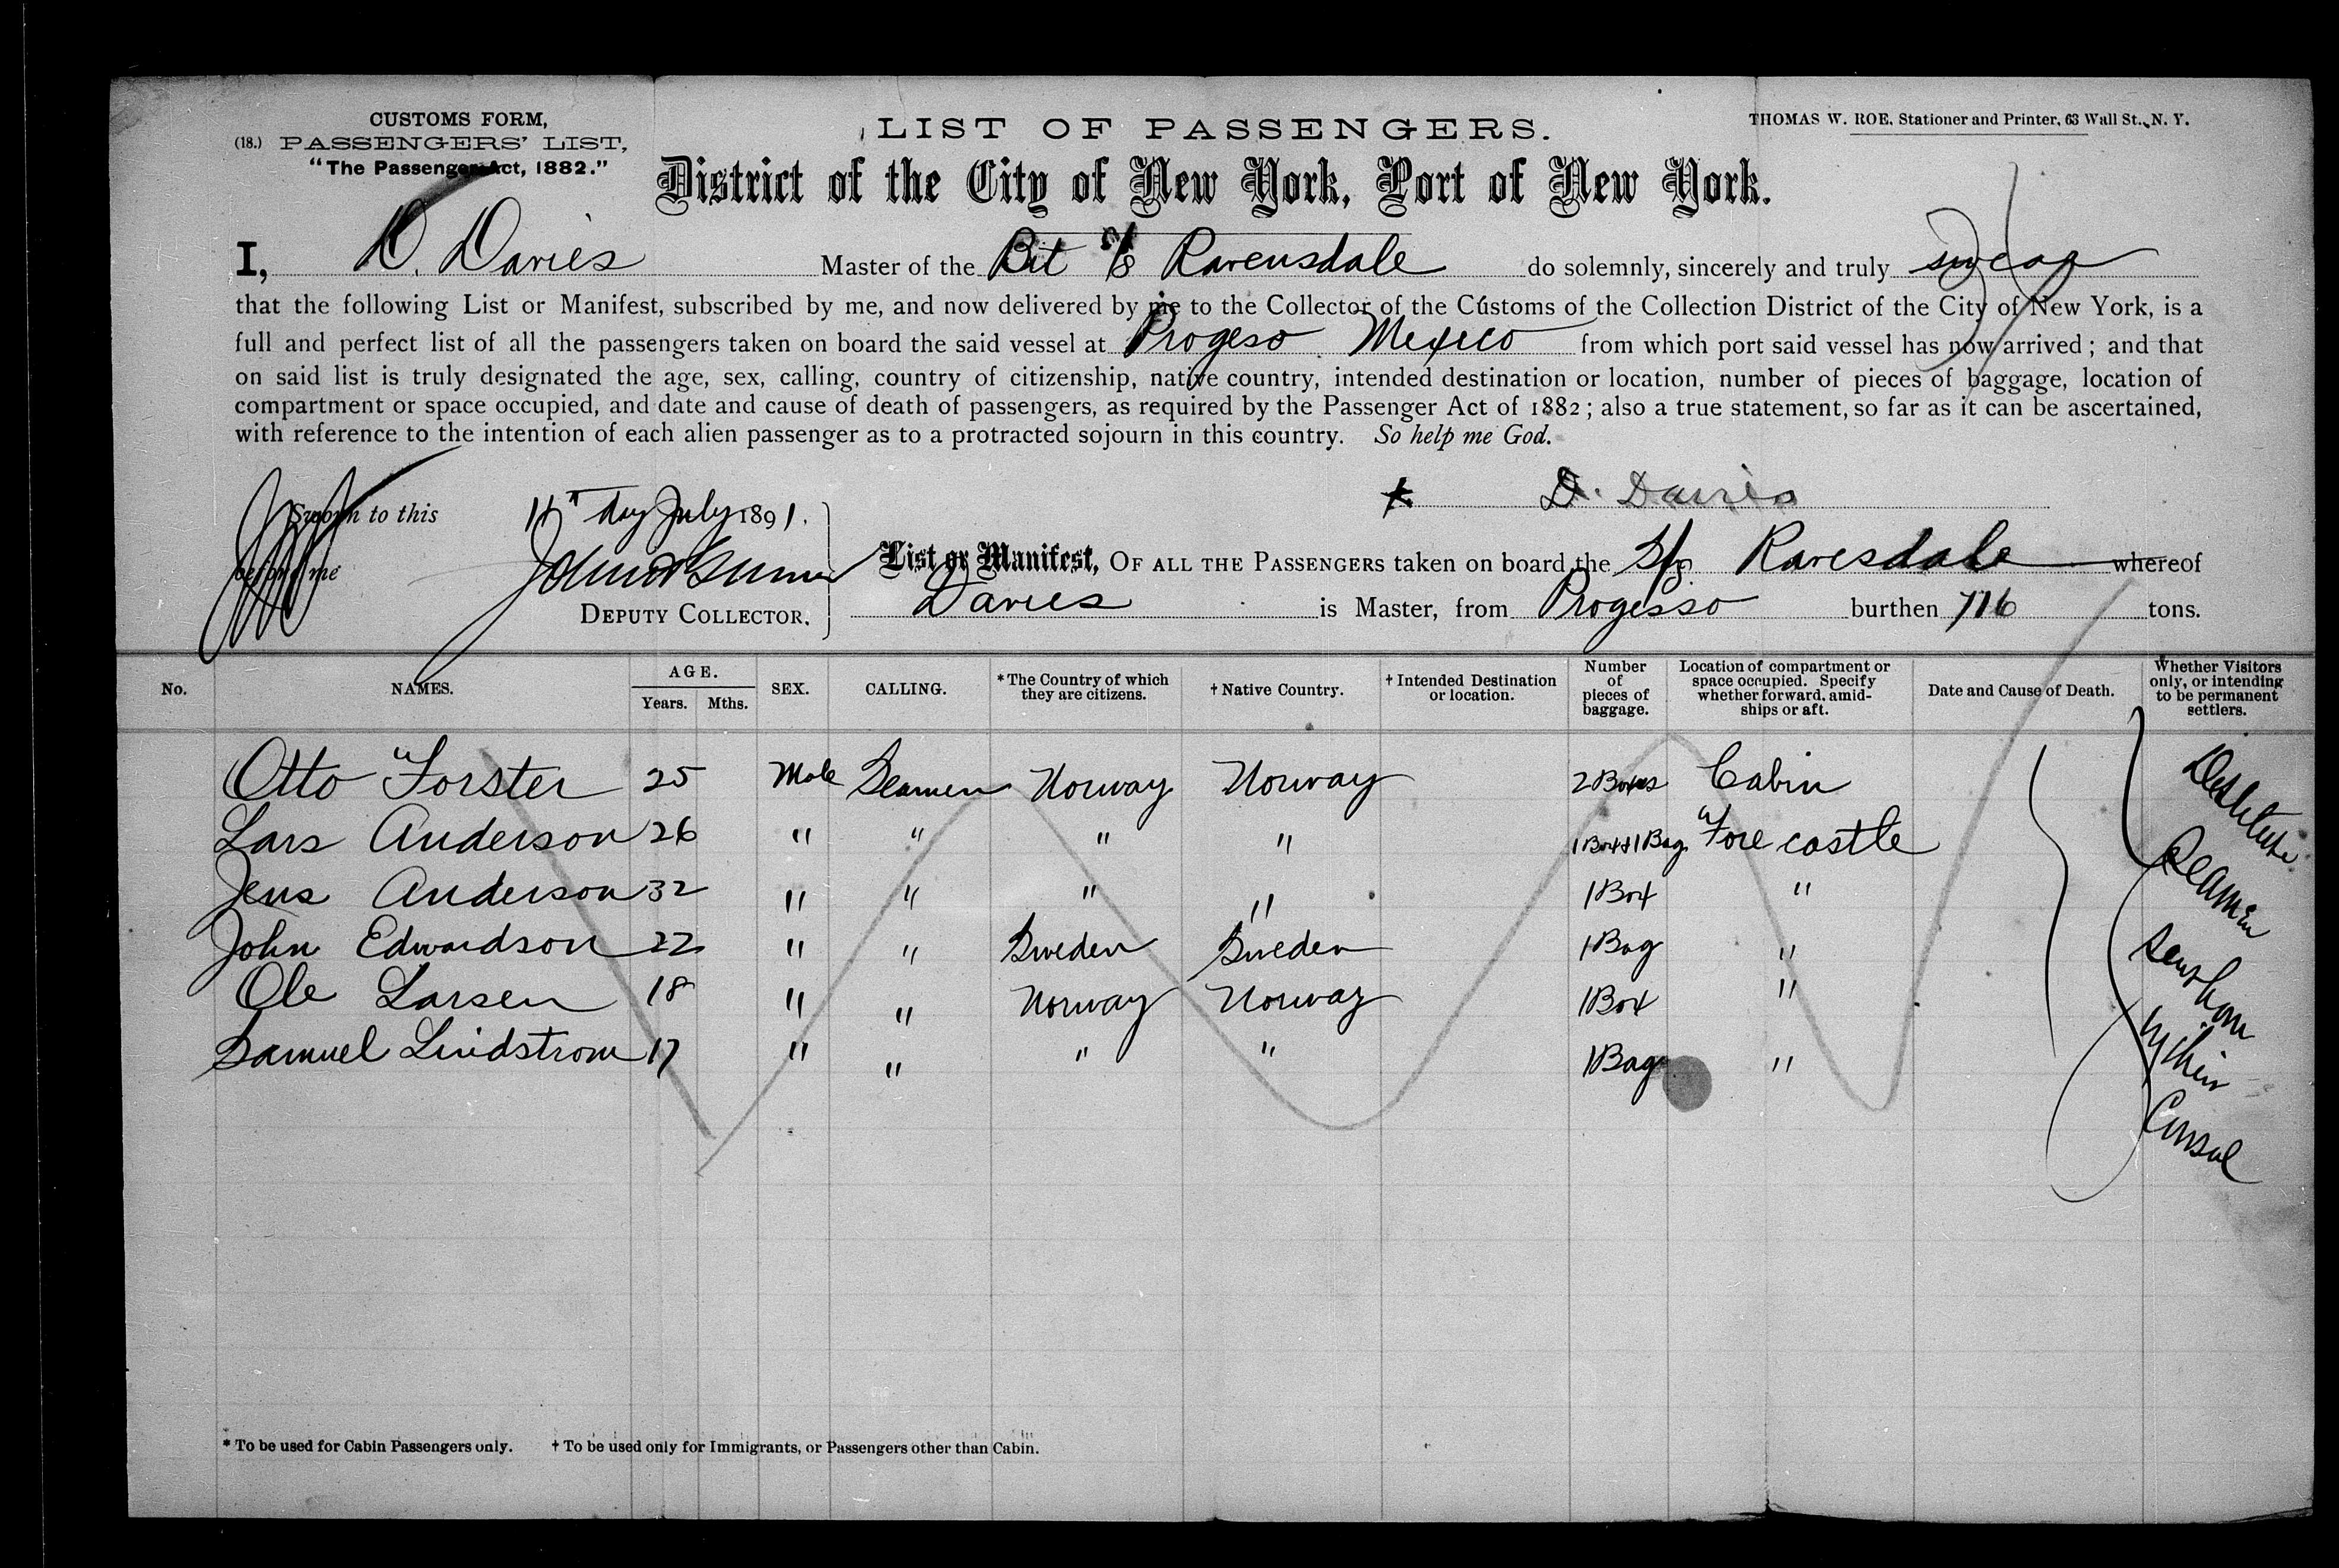 CUSTOMS FORM,
(18.) PASSENGERS' LIST,
"The Passenger Act, 1882."
LIST OF PASSENGERS.
THOMAS W. ROE, Stationer and Printer, 63 Wall St., N. Y.
District of the City of New York, Port of New York.
I, D. Davies Master of the Brit S/S Ravensdale do solemnly, sincerely and truly swear
that the following List or Manifest, subscribed by me, and now delivered by me to the Collector of the Customs of the Collection District of the City of New York, is a
full and perfect list of all the passengers taken on board the said vessel at Progeso Mexico from which port said vessel has now arrived; and that
on said list is truly designated the age, sex, calling, country of citizenship, native country, intended destination or location, number of pieces of baggage, location of
compartment or space occupied, and date and cause of death of passengers, as required by the Passenger Act of 1882; also a true statement, so far as it can be ascertained,
with reference to the intention of each alien passenger as to a protracted sojourn in this country. So help me God.
D. Davies
Sworn to this day July 1891.
before me
DEPUTY COLLECTOR.
List or Manifest, OF ALL THE PASSENGERS taken on board the S/S Ravesdale whereof
Davies is Master, from Progesso burthen 716 tons.
No. NAMES. AGE. Years. Mths. SEX. CALLING. * The Country of which they are citizens. † Native Country. † Intended Destination or location. Number of pieces of baggage. Location of compartment or space occupied. Specify whether forward, amidships or aft. Date and Cause of Death. Whether Visitors only, or intending to be permanent settlers.
Otto Forster 25 Male Seamen Norway Norway 2 Boxes Cabin
Lars Anderson 26 " " " " 1 Box & 1 Bag Fore castle
Jens Anderson 32 " " " " 1 Box "
John Edwardson 22 " " Sweden Sweden 1 Bag "
Ole Larsen 18 " " Norway Norway 1 Box "
Samuel Lindstrom 17 " " " " 1 Bag "
Destitute
Seamen
sent home
by their
Consul
* To be used for Cabin Passengers only. † To be used only for Immigrants, or Passengers other than Cabin.